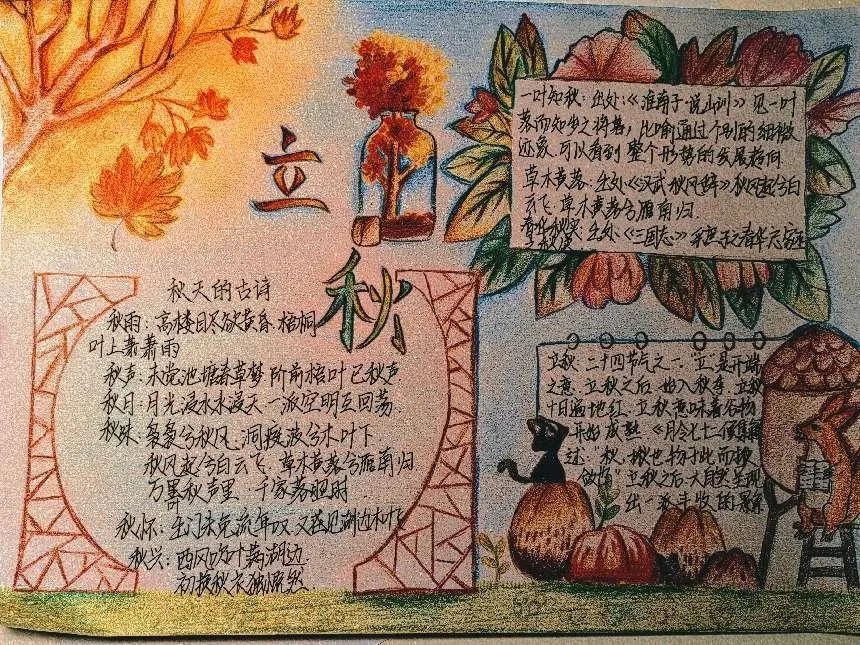 立
秋
一叶知秋：出处：《淮南子·说山训》见一叶
落而知岁之将暮，比喻通过个别的细微
迹象，可以看到整个形势的发展趋向
草木黄落：出处《汉武秋风辞》秋风起兮白
云飞，草木黄落兮雁南归.
春华秋实：出处：《三国志》
秋天的古诗
秋雨：高楼目尽欲黄昏，梧桐
叶上萧萧雨
秋声：未觉池塘春草梦 阶前梧叶已秋声
秋月：月光浸水水浸天 一派空明互回荡.
袅袅兮秋风，洞庭波兮木叶下
秋风起兮白云飞，草木黄落兮雁南归
万里秋声里，千家落照时.
秋怀：出门未免流年叹，又见湖边木叶飞
秋兴：西风吹叶满湖边
初换秋衣独慨然.
立秋，二十四节气之一，“立”是开端
之意，立秋之后，也入秋季，立秋
十日遍地红，立秋意味着谷物
开始成熟，《月令七十二候集解》
述：“秋，揪也，物于此而揪
立秋之后，大自然呈现
出一派丰收的景象